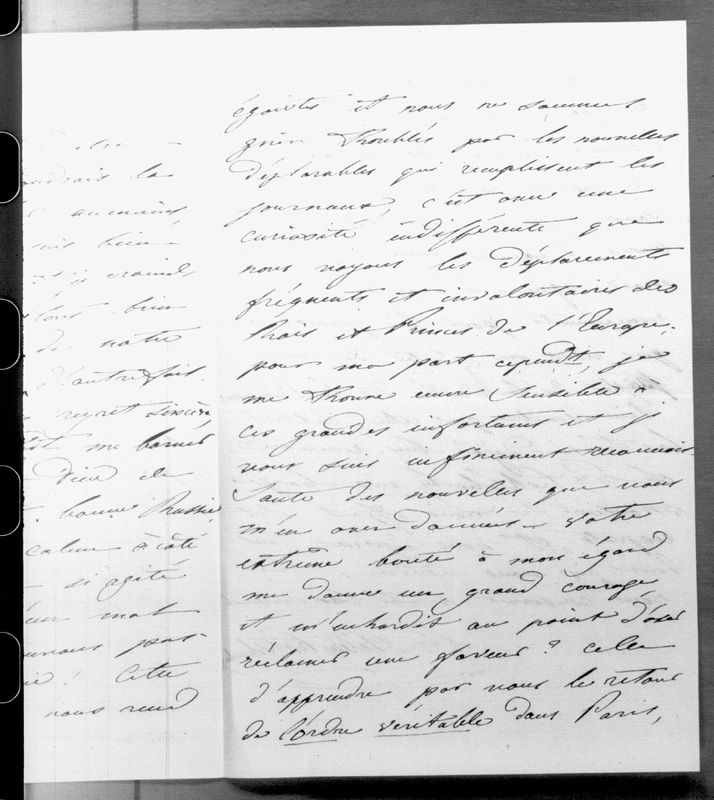 la
bien
craind
bien
de notre
d'autrefois.
regret sincère,
me borner
Dieu de
bonne Russie
calme à côté
si agité
un mot
pas-
Cette
nous rend
égoïstes et nous ne sommes
guère troublés par les nouvelles
déplorables qui remplissent les
journaux, c'est avec une
curiosité indifférente que
nous voyons les déplacements
fréquents et involontaires des
Rois et Princes de l'Europe.
pour ma part cependt, je
me trouve encore sensible à
ces grandes infortunes et je
vous suis infiniment reconnais-
sante des nouvelles que vous
m'en avez données – votre
extrême bonté à mon égard
me donne un grand courage
et m'enhardit au point d'oser
réclamer une faveur? celle
d'apprendre par vous le retour
de l'ordre véritable dans Paris,